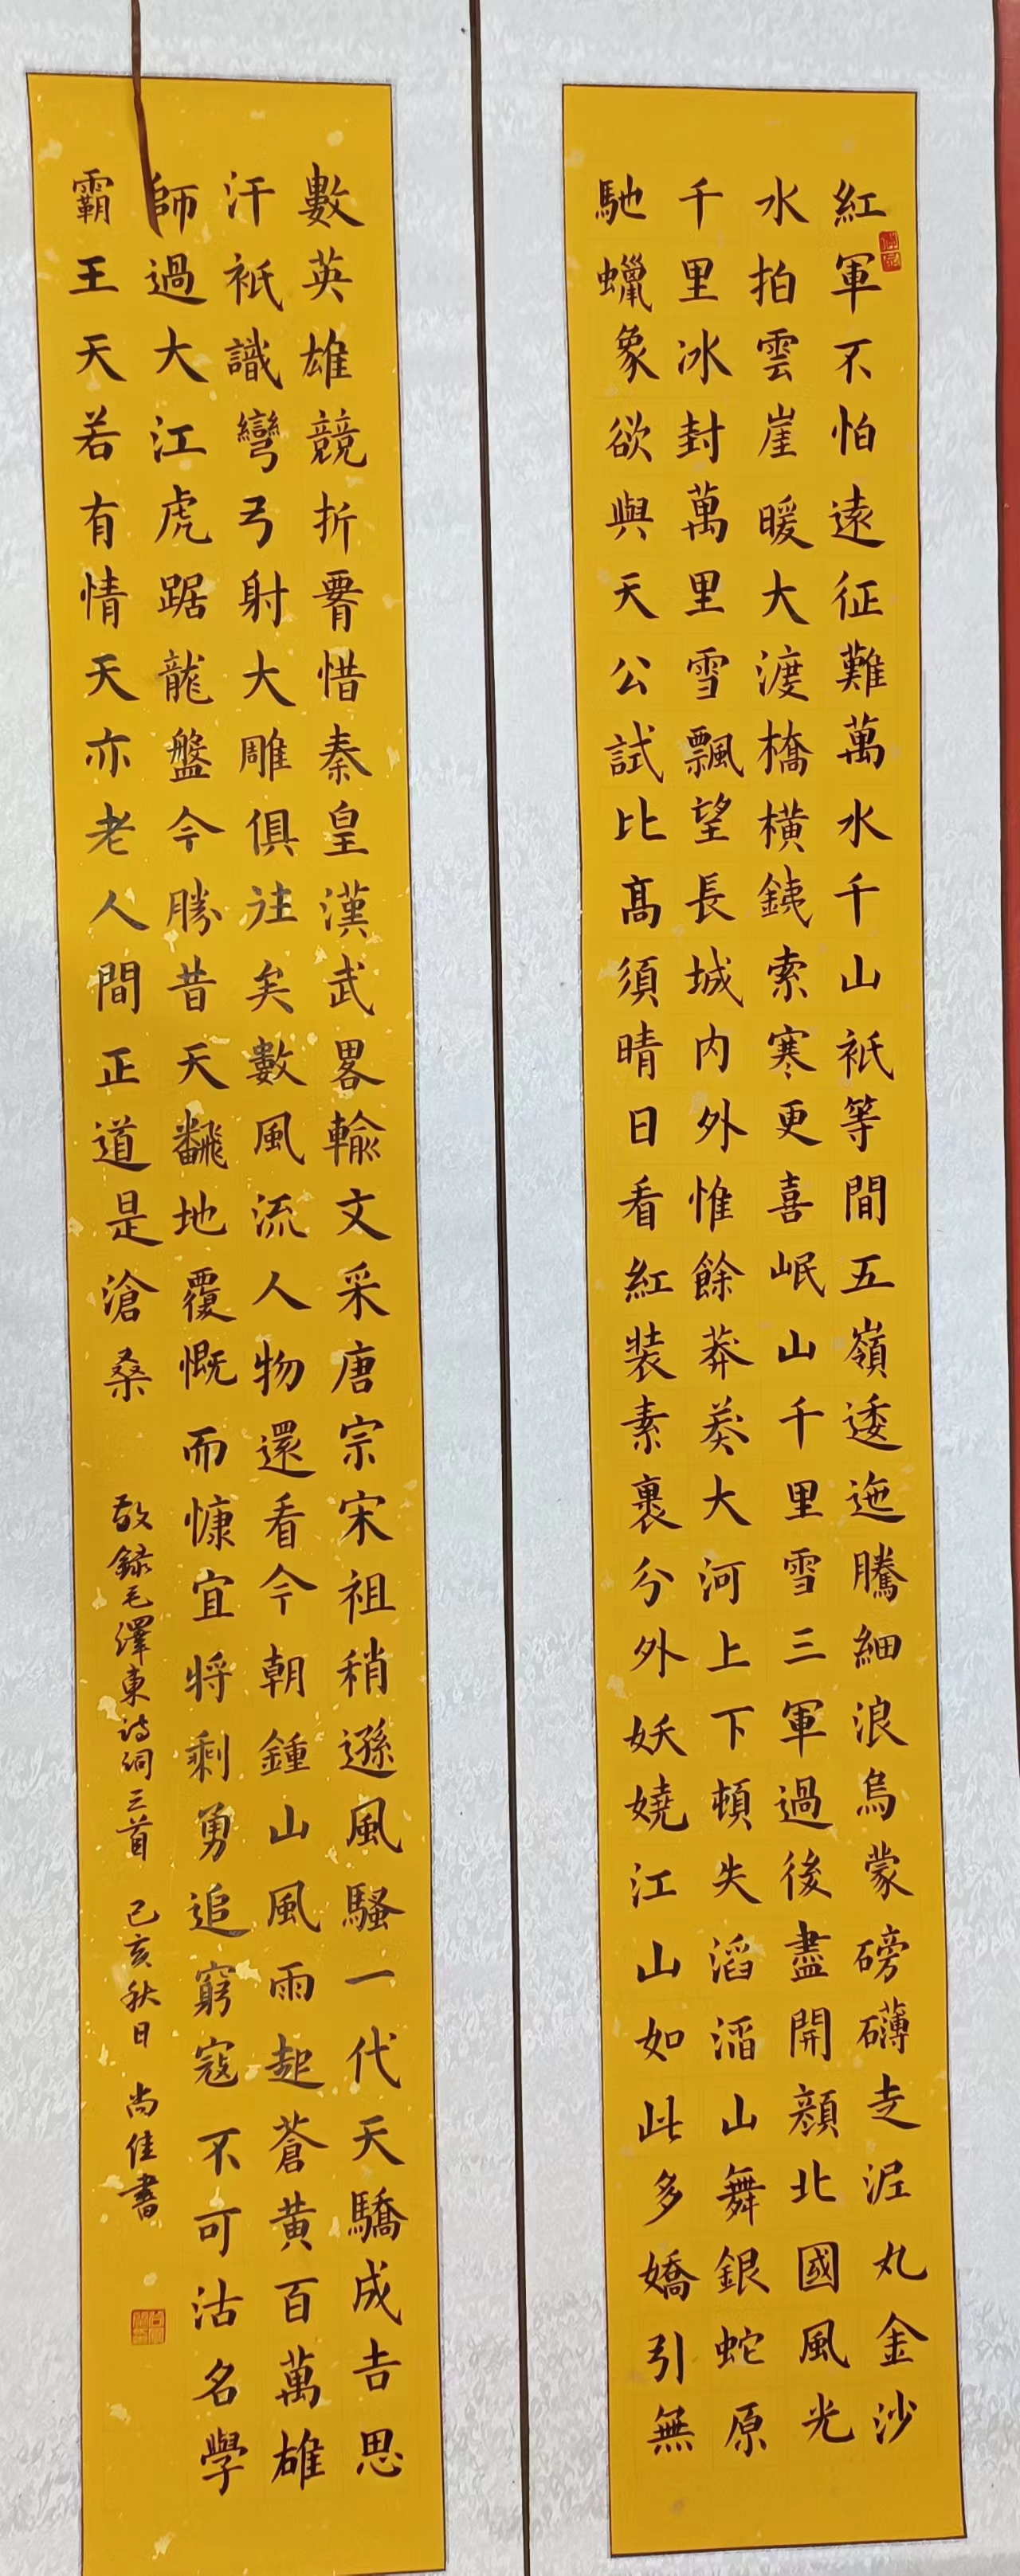 紅軍不怕遠征難萬水千山祇等間五嶺逶迤騰細浪烏蒙磅礴走泥丸金沙
水拍雲崖暖大渡橋橫銕索寒更喜岷山千里雪三軍過後盡開顏北國風光
千里冰封萬里雪飄望長城內外惟餘莽莽大河上下頓失滔滔山舞銀蛇原
馳蠟象欲與天公試比高須晴日看紅裝素裹分外妖嬈江山如此多嬌引無
數英雄競折要惜秦皇漢武畧輸文采唐宗宋祖稍遜風騷一代天驕成吉思
汗祇識彎弓射大雕俱往矣數風流人物還看今朝鍾山風雨起蒼黃百萬雄
師過大江虎踞龍盤今勝昔天飜地覆慨而慷宜將剩勇追窮寇不可沽名學
霸王天若有情天亦老人間正道是滄桑
敬錄毛澤東詩詞三首 己亥秋日 尚佳書